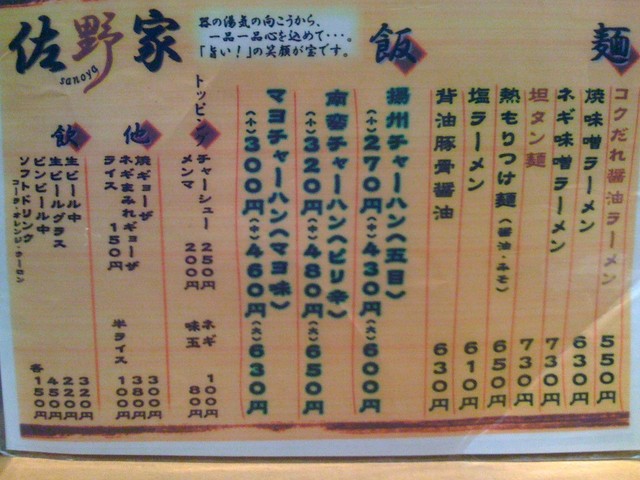 佐野家
sanoya
器の湯気の向こうから、
一品一品心を込めて・・・。
「旨い!」の笑顔が宝です。
麺
コクだれ醤油ラーメン 550円
焼味噌ラーメン 630円
ネギ味噌ラーメン 730円
坦タン麺 730円
熱もりつけ麺(醤油・みそ) 650円
塩ラーメン 610円
背油豚骨醤油 630円
飯
揚州チャーハン(五目)
(小)270円(中)430円(大)600円
南蛮チャーハン(ピリ辛)
(小)320円(中)480円(大)650円
マヨチャーハン(マヨ味)
(小)300円(中)460円(大)630円
トッピング
チャーシュー 250円
メンマ 200円
ネギ 100円
味玉 80円
他
焼ギョーザ 300円
ネギまみれギョーザ 380円
ライス 150円
半ライス 100円
飲
生ビール中 320円
生ビールグラス 220円
ビンビール中 450円
ソフトドリンク 各150円
コーラ・オレンジ・ウーロン